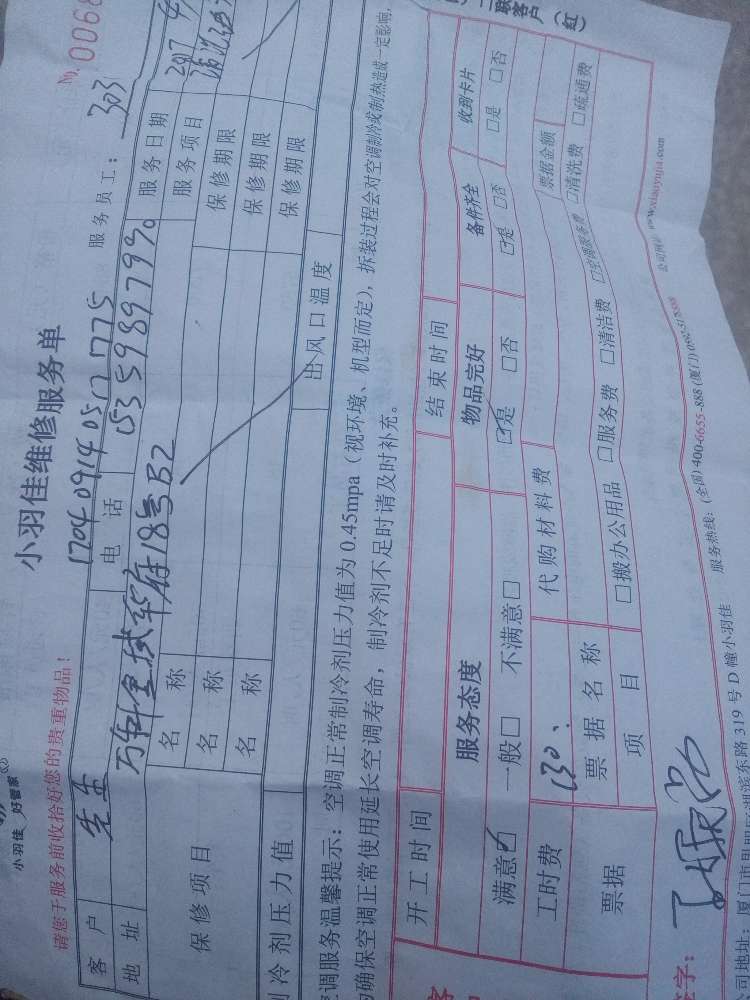 小羽佳 好管家
联客户(红)
请您于服务前收拾好您的贵重物品!
小羽佳维修服务单
№ 0068
17040914051775
服务员工: 303
客户 先生 电话 15359897930 服务日期 2017
地址 万科金域华府18号B2 服务项目 清洗
保修项目 名称 保修期限
名称 保修期限
名称 保修期限
制冷剂压力值 出风口温度
空调服务温馨提示: 空调正常制冷剂压力值为0.45mpa(视环境、机型而定), 拆装过程会对空调制冷或制热造成一定影响,
为确保空调正常使用延长空调寿命, 制冷剂不足时请及时补充。
开工时间 结束时间
服务态度 物品完好 备件齐全 收到卡片
满意☑ 一般□ 不满意□ ☑是 □否 ☑是 □否 □是 □否
工时费 130. 代购材料费 票据金额
票据 票据名称 □服务费 □清洁费 □空调服务费 □清洗费 □疏通费
项目 □搬办公用品
字:
司地址: 厦门市思明区湖滨东路319号D幢小羽佳 服务热线: (全国) 400-6655-888 (厦门) 0592-5178888 公司网址 www.xiaoyujia.com